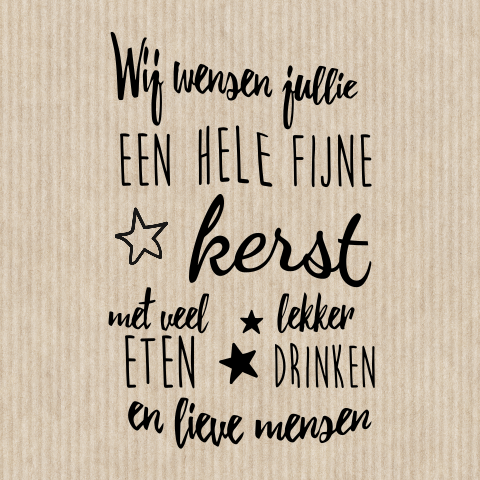 Wij wensen jullie
EEN HELE FIJNE
kerst
met veel lekker
ETEN DRINKEN
en lieve mensen